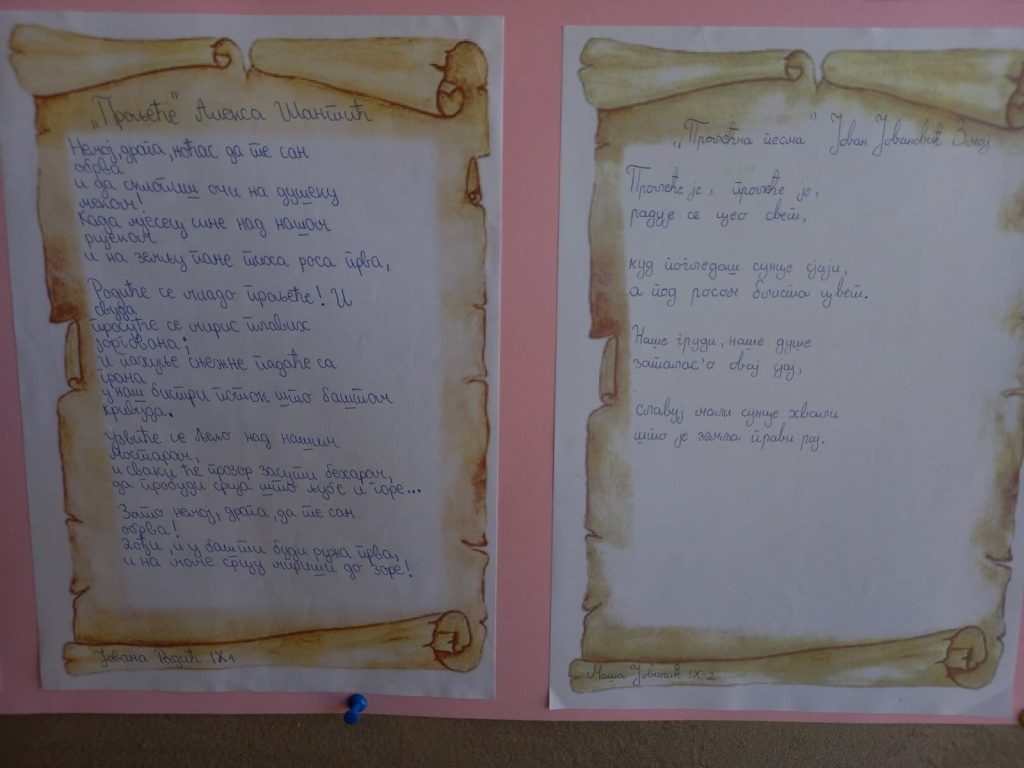 „Прољеће" Алекса Шантић
Немој, драга, ноћас да те сан
обрва
и да склопиш очи на душеку
меком!
Када мјесец сине над нашом
ријеком
и на земљу пане тиха роса прва,
Родиће се младо прољеће! И
свуда
просуће се мирис плавих
јоргована;
И пахуље сњежне падаће са
грана
у наш бистри поток што баштом
кривуда.
Узвиће се Љељо над нашим
Мостаром,
и сваки ће прозор засути бехаром,
да пробуди срца што љубе и горе...
Зато немој, драга, да те сан
обрва!
Дођи, и у башти буди ружа прва,
и на моме срцу мириши до зоре!
Јована Радић IX1
„Прољећна песма" Јован Јовановић Змај
Прољеће је, прољеће је,
радује се цео свет,
куд погледаш сунце сјаји,
а под росом блиста цвет.
Наше груди, наше душе
заталас'о овај сјај,
славуј мали сунце хвали
што је земља прави рај.
Маша Јовичић IX-2